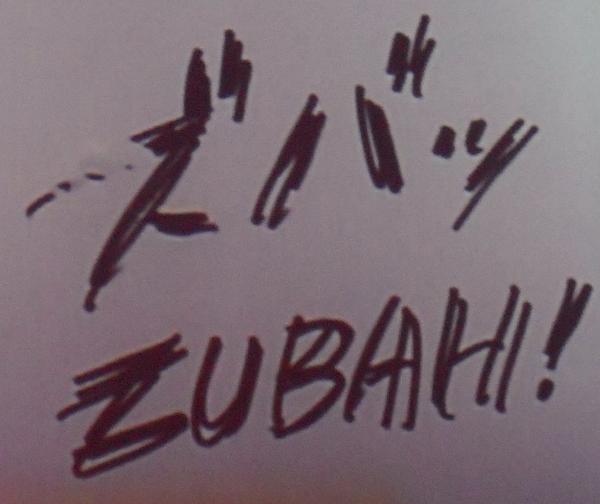 ズバッ
ZUBAH!